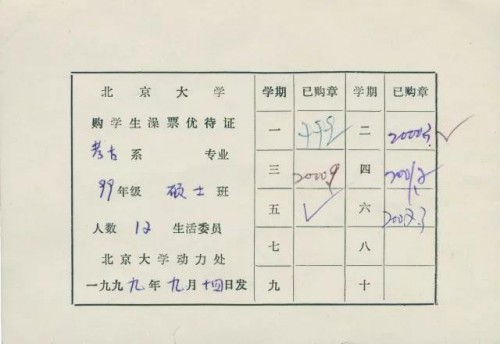 北京大学
购学生澡票优待证
考古系 专业
99年级 硕士班
人数 12 生活委员
北京大学动力处
一九九九年九月十四日发
学期 已购章 学期 已购章
一 二 2000.3
三 2000.9 四
五 六 2002.3
七 八
九 十